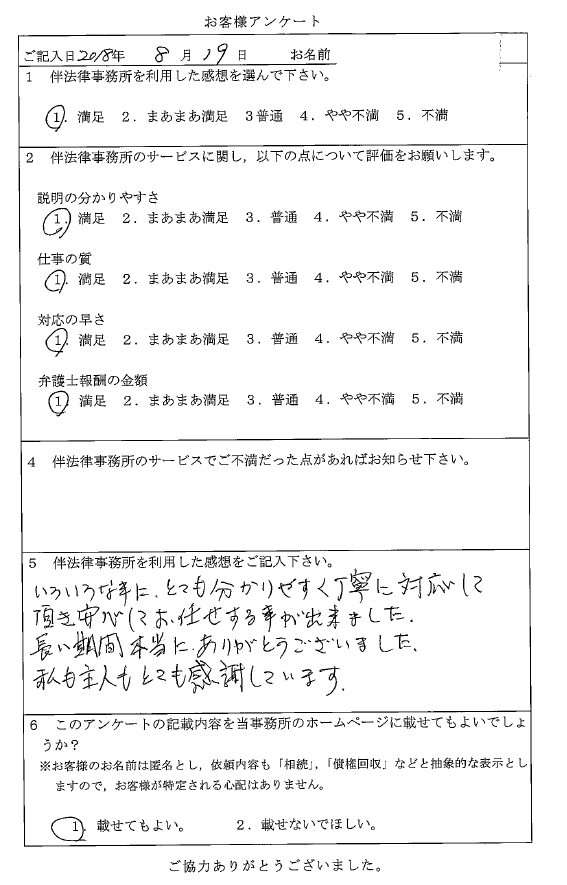 お客様アンケート
ご記入日2018年 8月19日 お名前
1 伴法律事務所を利用した感想を選んで下さい。
1. 満足 2. まあまあ満足 3普通 4. やや不満 5. 不満
2 伴法律事務所のサービスに関し,以下の点について評価をお願いします。
説明の分かりやすさ
1. 満足 2. まあまあ満足 3. 普通 4. やや不満 5. 不満
仕事の質
1. 満足 2. まあまあ満足 3. 普通 4. やや不満 5. 不満
対応の早さ
1. 満足 2. まあまあ満足 3. 普通 4. やや不満 5. 不満
弁護士報酬の金額
1. 満足 2. まあまあ満足 3. 普通 4. やや不満 5. 不満
4 伴法律事務所のサービスでご不満だった点があればお知らせ下さい。
5 伴法律事務所を利用した感想をご記入下さい。
いろいろな事に、とても分かりやすく丁寧に対応して
頂き安心してお任せする事が出来ました.
長い期間本当に、ありがとうございました.
私も主人もとても感謝しています.
6 このアンケートの記載内容を当事務所のホームページに載せてもよいでしょ
うか?
※お客様のお名前は匿名とし,依頼内容も「相続」,「債権回収」などと抽象的な表示とし
ますので,お客様が特定される心配はありません。
1. 載せてもよい。 2. 載せないでほしい。
ご協力ありがとうございました。